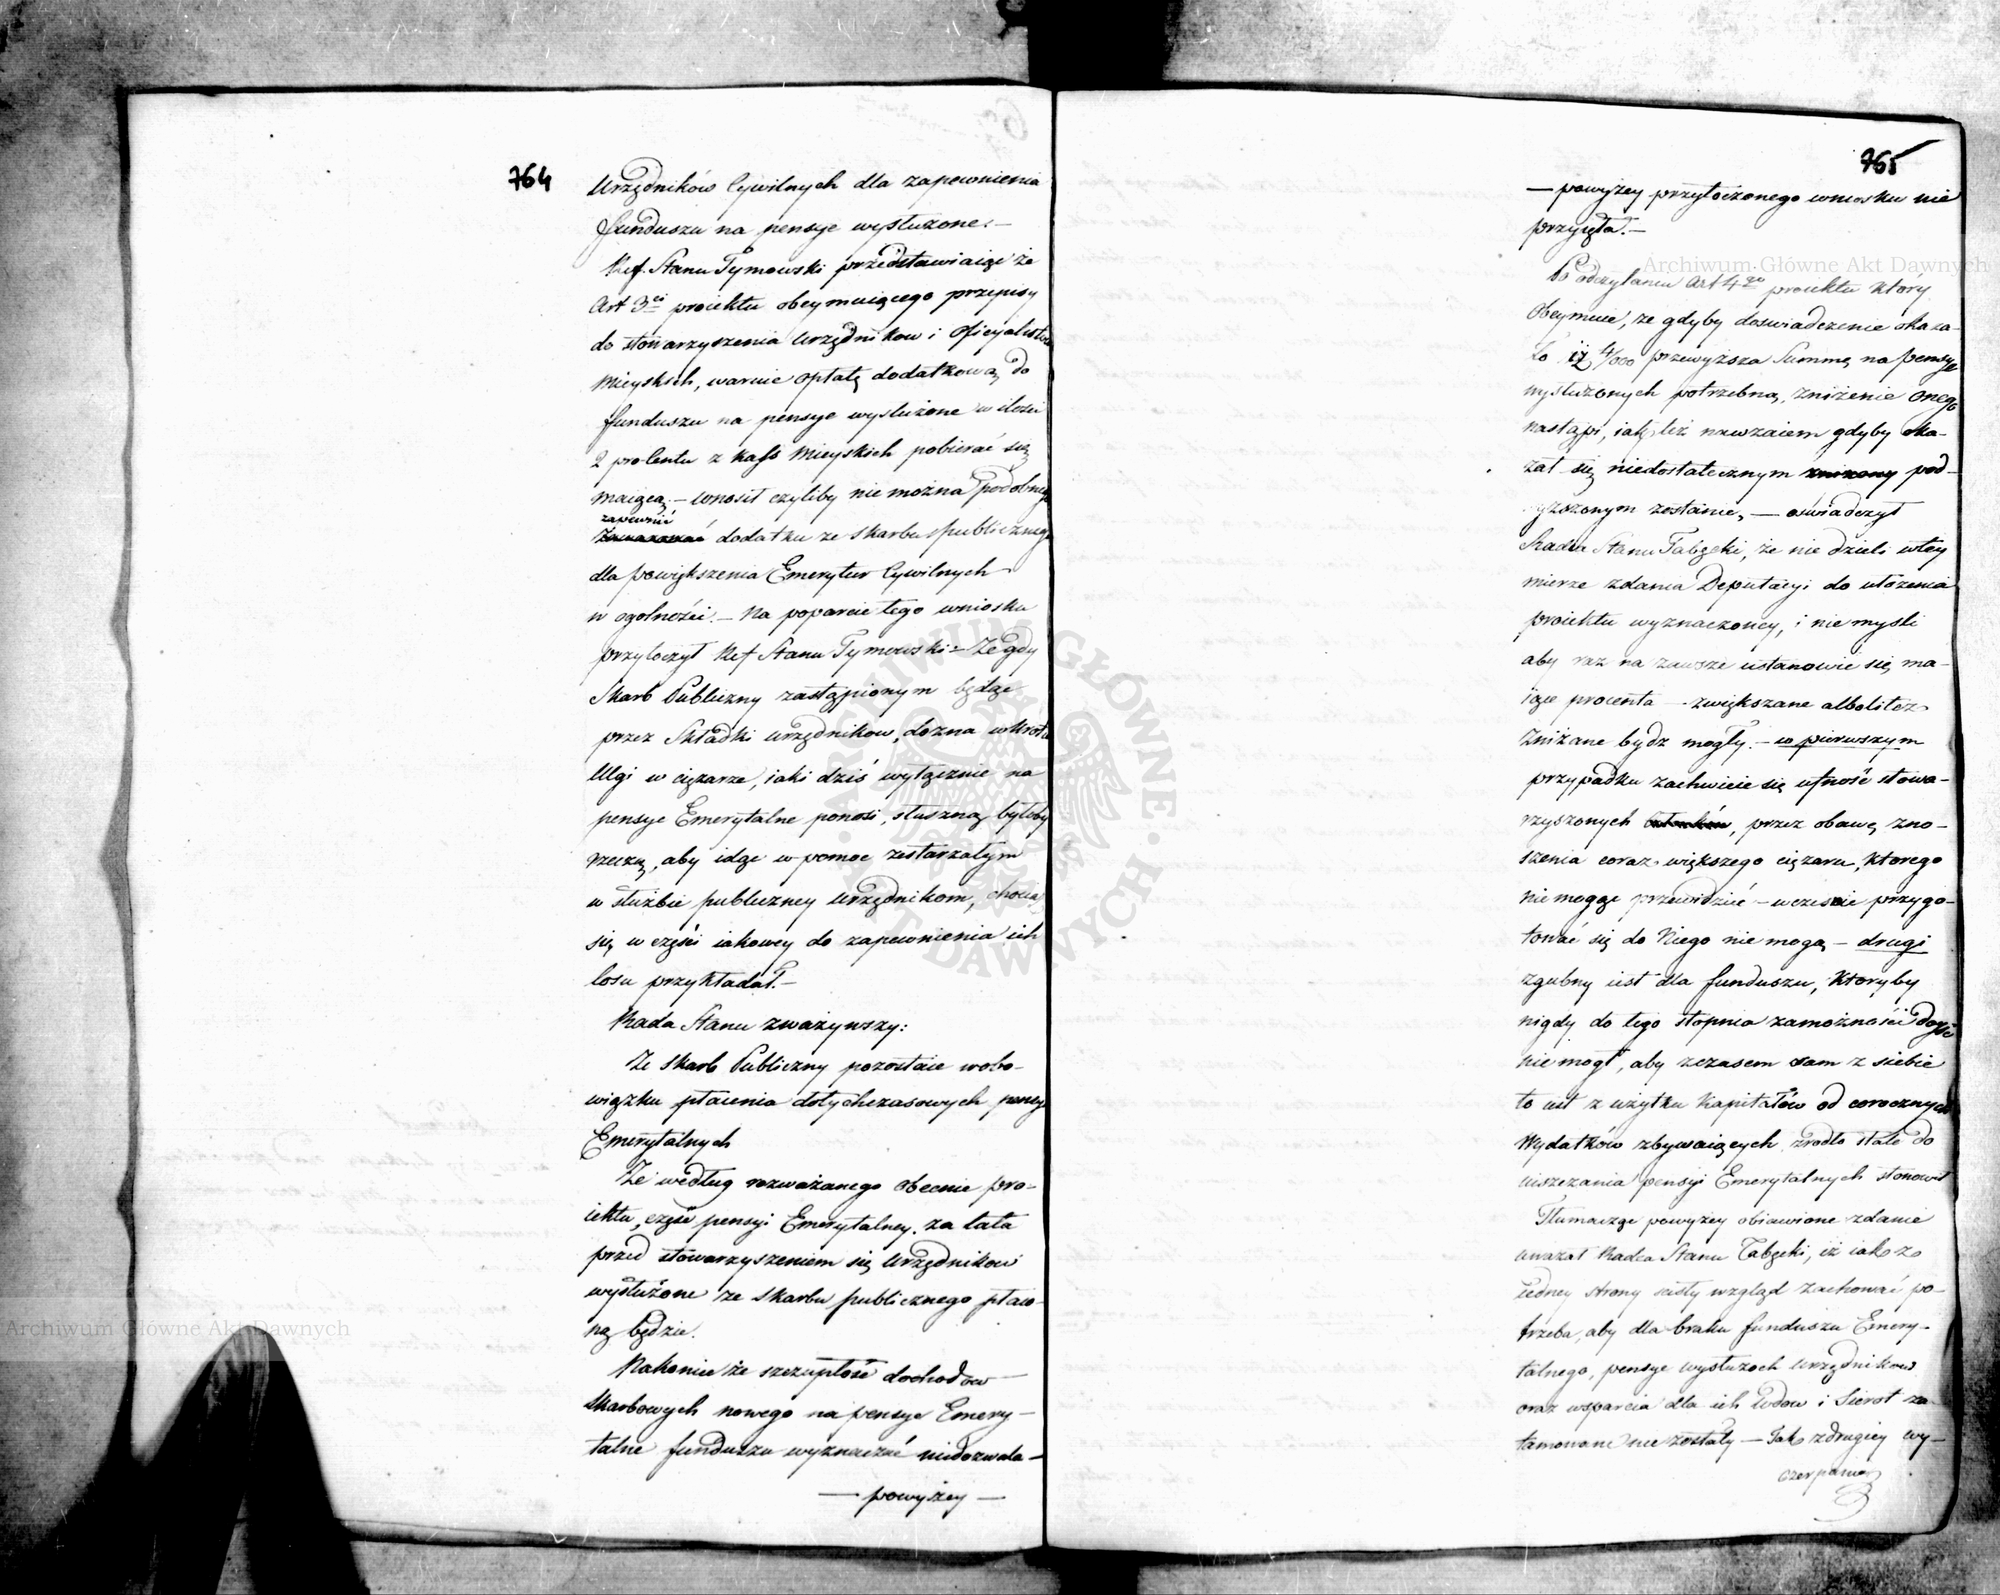 764
Urzędników Cywilnych dla zapewnienia
funduszu na pensye wysłużone. —
Ref. Stanu Tymowski przedstawiaiąc że
Art 3ci proiektu obeymuiącego przepisy
do stowarzyszenia Urzędnikow i Oficyalistow
Mieyskich, warue opłatę dodatkową do
funduszu na pensye wysłużone w ilości
2 pro Centu z Kass Mieyskich pobierać się
maiącą. — wnosił czyliby nie można podobnego
zapewnić
dodatku ze skarbu publicznego
dla powiększenia Emerytur Cywilnych
w ogolności. — Na poparcie tego wniosku
przytoczył Ref Stanu Tymowski = Że gdy
Skarb Publiczny zastąpionym będąc
przez Składki Urzędnikow, dozna wkrotce
Ulgi w ciężarze, iaki dziś wyłącznie na
pensye Emerytalne ponosi, słuszną byłoby
rzeczą, aby idąc w pomoc zestarzałym
w służbie publiczney Urzędnikom, chociaż
się w części iakowey do zapewnienia ich
losu przykładał. —
Rada Stanu zważywszy:
Że Skarb Publiczny pozostaie w obo-
wiązku płacenia dotychczasowych pensyi
Emerytalnych
Że według rozważanego obecnie pro-
iektu, część pensyi Emerytalney za lata
przed stowarzyszeniem się Urzędnikow
wysłużone ze skarbu publicznego płaco-
ną będzie.
Nakoniec że szczupłość dochodow
Skarbowych nowego na pensye Emery-
talne funduszu wyznaczać niedozwala —
— powyżey —
765
— powyżey przytoczonego wniosku nie
przyięła. —
Po odczytaniu Art 4go proiektu który
Obeymuie, że gdyby doswiadczenie okaza-
ło iż 4/000 przewyższa Summę na pensye
wysłużonych potrzebną, zniżenie onego
nastąpi, iak też nawzaiem gdyby oka-
zał się niedostatecznym zniżony pod-
wyższonym zostanie, — oświadczył
Radca Stanu Tabęcki, że nie dzieli wtey
mierze zdania Deputacyi do ułożenia
proiektu wyznaczoney, i nie myśli
aby raz na zawsze ustanowić się ma-
iące procenta zwiększane albo li też
Zniżane bydz mogły. — w pierwszym
przypadku zachwieie się ufność stowa-
rzyszonych , przez obawę zno-
szenia coraz większego ciężaru, ktorego
nie mogąc przewidzić — wcześnie przygo-
tować się do Niego nie mogą — drugi
zgubny iest dla funduszu, ktoryby
nigdy do tego stopnia zamożności doyść
nie mogł, aby zczasem sam z siebie
to iest z użytku Kapitałów od corocznych
Wydatków zbywaiących zrodło stałe do
uiszczania pensyi Emerytalnych stanowił
Tłumacząc powyżey obiawione zdanie
uważał Radca Stanu Tabęcki, iż iak z
iedney strony ścisły wzgląd zachować po-
trzeba, aby dla braku funduszu Emery-
talnego, pensye wysłużoch Urzędnikow
oraz wsparcia dla ich Wdow i Sierot za-
tamowane nie zostały — Tak z drugiey wy-
czerpanie